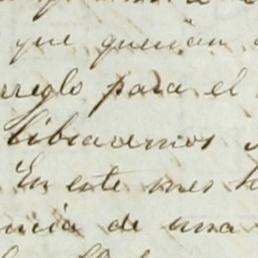 que querian
arreglo para el
libraremos
En este mes
ncia de una